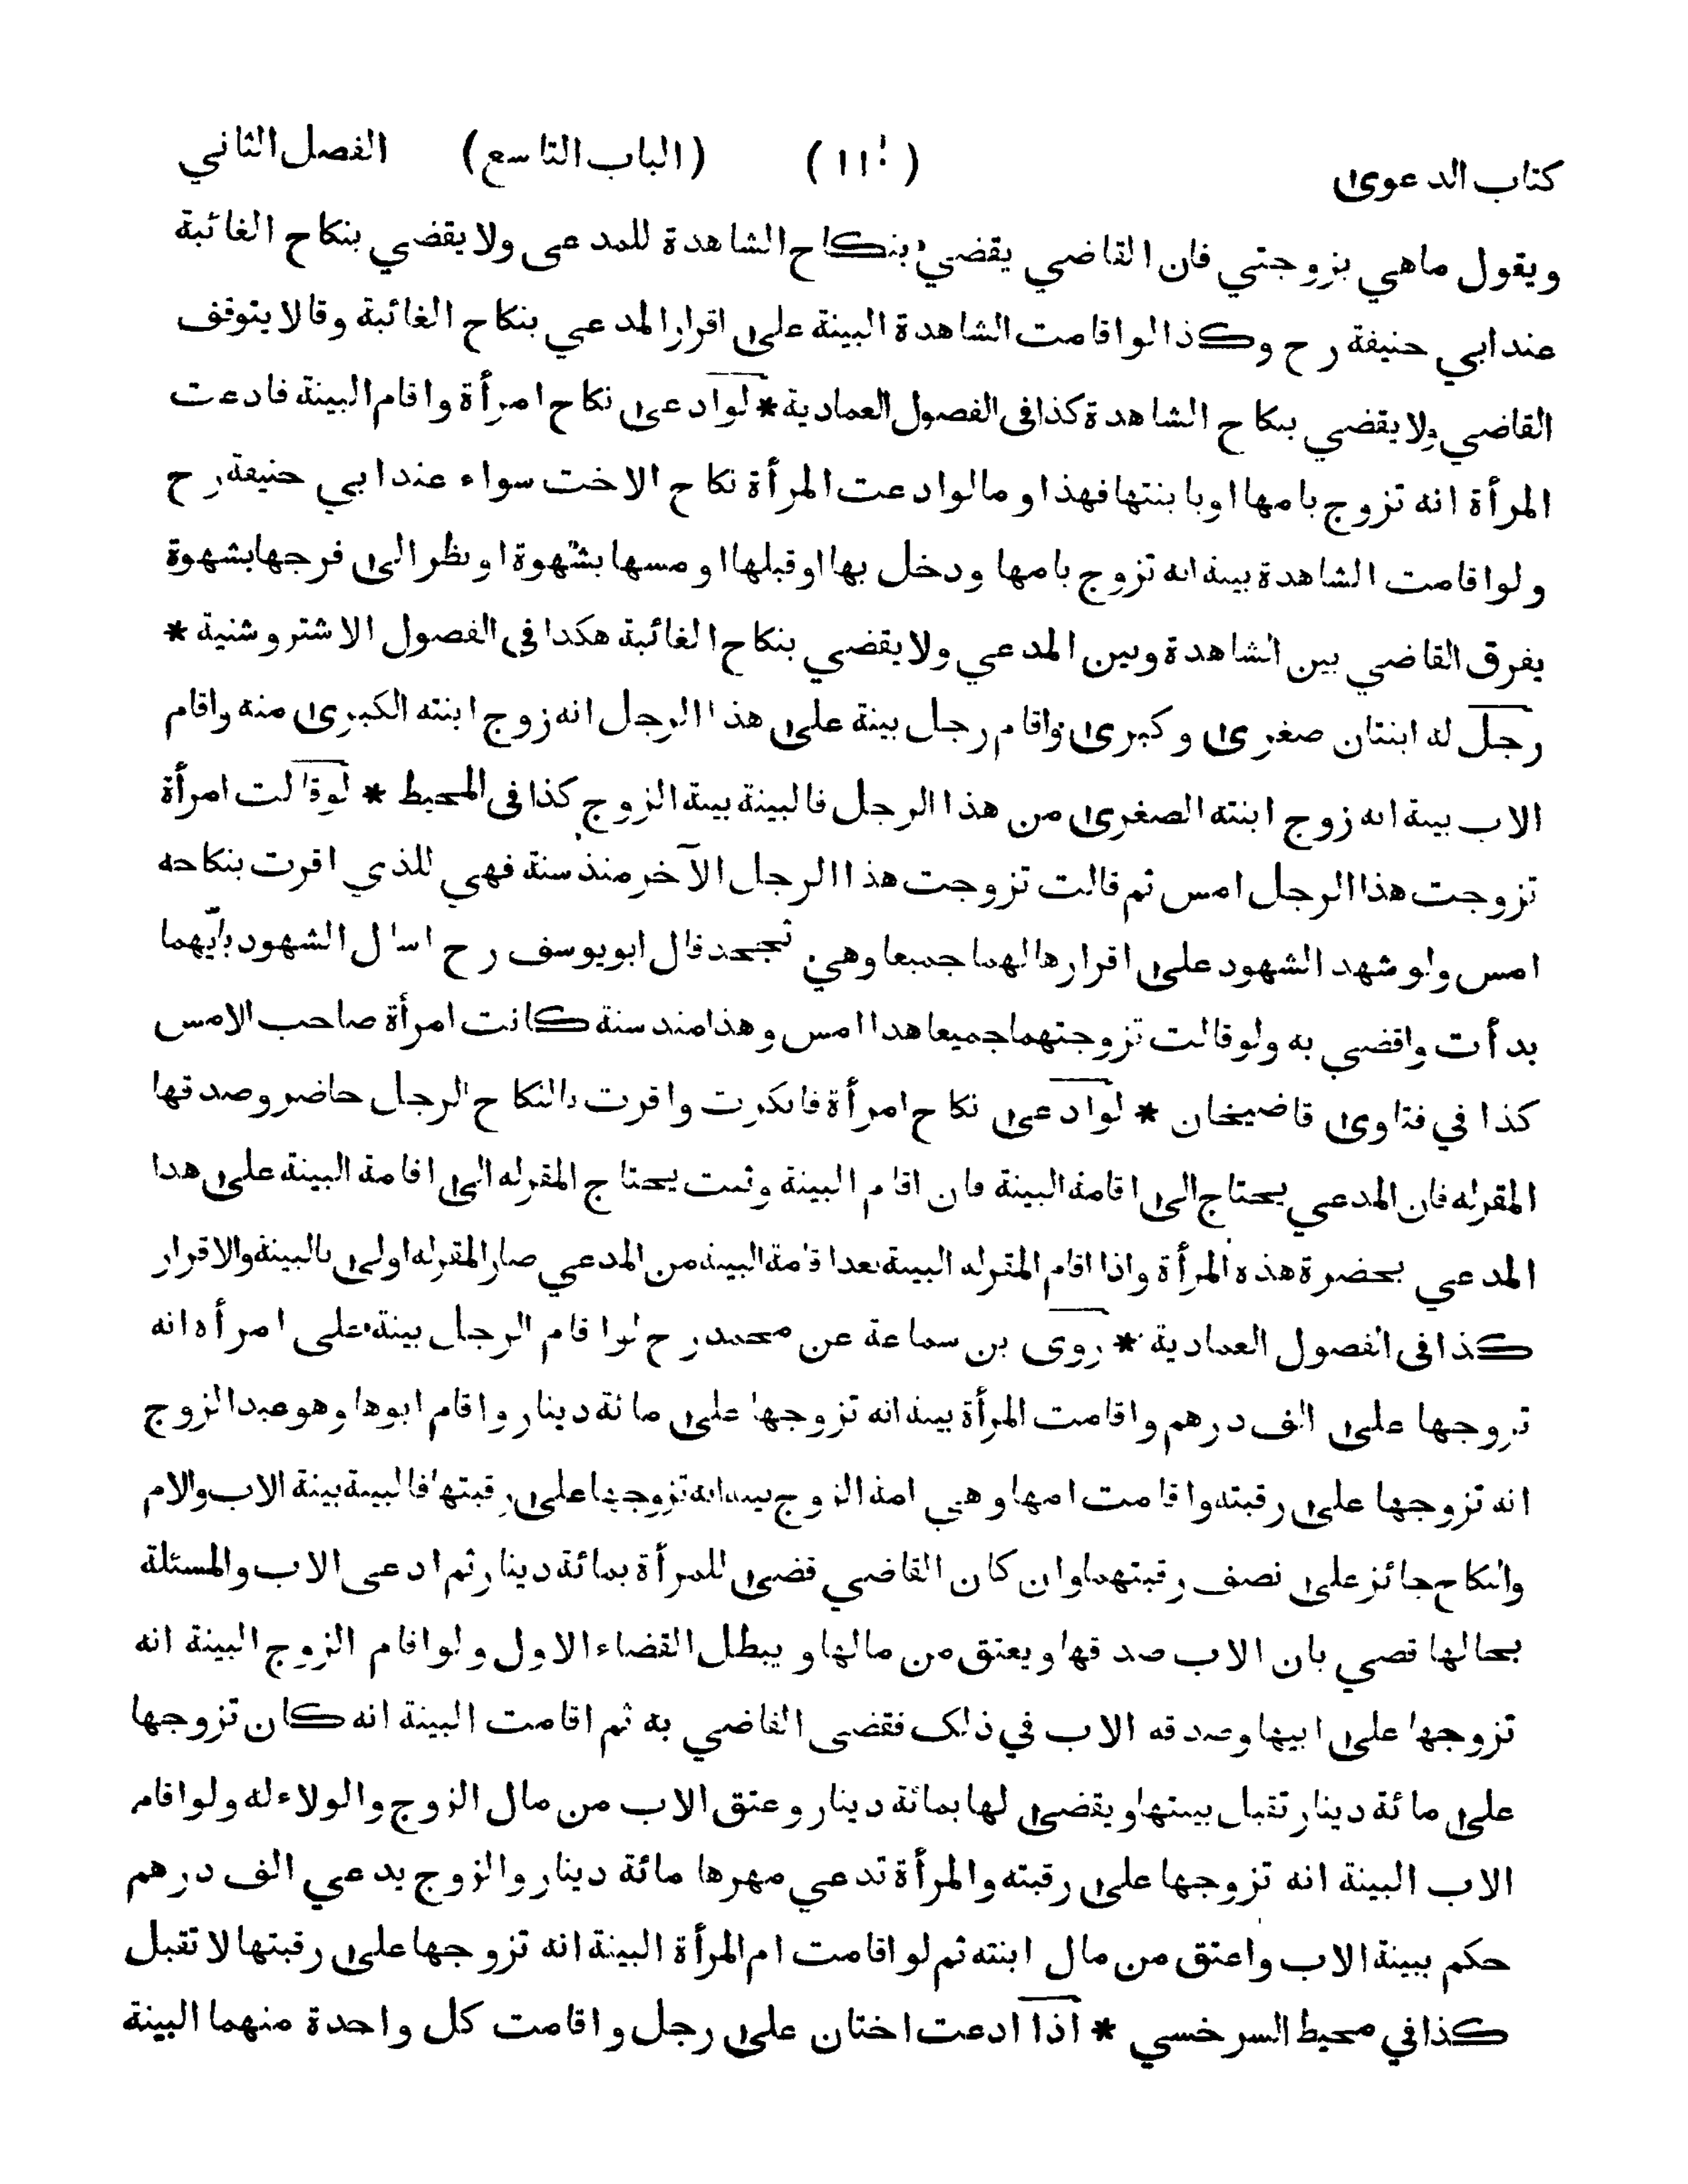 كتاب الدعوى (١١٠) (الباب التاسع) الفصل الثاني
ويقول ماهي بزوجتي فان القاضي يقضي بنكاح الشاهدة للمدعى ولا يقضي بنكاح الغائبة
عند ابي حنيفة رح وكذا لو اقامت الشاهدة البينة على اقرار المدعي بنكاح الغائبة وقالا يتوقف
القاضي ولا يقضي بنكاح الشاهدة كذا في الفصول العمادية * لو ادعى نكاح امرأة واقام البينة فادعت
المرأة انه تزوج بامها او بابنتها فهذا وما لو ادعت المرأة نكاح الاخت سواء عند ابي حنيفة رح
ولو اقامت الشاهدة بينة انه تزوج بامها ودخل بها او قبلها او مسها بشهوة او نظر الى فرجها بشهوة
يفرق القاضي بين الشاهدة وبين المدعي ولا يقضي بنكاح الغائبة هكذا في الفصول الاشتروشنية *
رجل له ابنتان صغرى وكبرى واقام رجل بينة على هذا الرجل انه زوج ابنته الكبرى منه واقام
الاب بينة انه زوج ابنته الصغرى من هذا الرجل فالبينة بينة الزوج كذا في المحيط * لو قالت امرأة
تزوجت هذا الرجل امس ثم قالت تزوجت هذا الرجل الآخر منذ سنة فهي للذي اقرت بنكاحه
امس ولو شهد الشهود على اقرارها لهما جميعا وهي تجحد قال ابو يوسف رح اسأل الشهود بأيّهما
بدأت واقضي به ولو قالت تزوجتهما جميعا هذا امس وهذا منذ سنة كانت امرأة صاحب الامس
كذا في فتاوى قاضيخان * لو ادعى نكاح امرأة فانكرت واقرت بالنكاح الرجل حاضر وصدقها
المقر له فان المدعي يحتاج الى اقامة البينة فان اقام البينة وثبت يحتاج المقر له الى اقامة البينة على هذا
المدعي بحضرة هذه المرأة واذا اقام المقر له البينة بعد اقامة البينة من المدعي صار المقر له اولى بالبينة والاقرار
كذا في الفصول العمادية * روى بن سماعة عن محمد رح لو اقام الرجل بينة على امرأه انه
تزوجها على الف درهم واقامت المرأة بينة انه تزوجها على مائة دينار واقام ابوها وهو عبد الزوج
انه تزوجها على رقبته واقامت امها وهي امة الزوج بينة انه تزوجها على رقبتها فالبينة بينة الاب والام
والنكاح جائز على نصف رقبتهما وان كان القاضي قضى للمرأة بمائة دينار ثم ادعى الاب والمسئلة
بحالها قضي بان الاب صدقها ويعتق من مالها ويبطل القضاء الاول ولو اقام الزوج البينة انه
تزوجها على ابيها وصدقه الاب في ذلك فقضى القاضي به ثم اقامت البينة انه كان تزوجها
على مائة دينار تقبل بينتها ويقضى لها بمائة دينار وعتق الاب من مال الزوج والولاء له ولو اقام
الاب البينة انه تزوجها على رقبته والمرأة تدعي مهرها مائة دينار والزوج يدعي الف درهم
حكم ببينة الاب واعتق من مال ابنته ثم لو اقامت ام المرأة البينة انه تزوجها على رقبتها لا تقبل
كذا في محيط السرخسي * اذا ادعت اختان على رجل واقامت كل واحدة منهما البينة